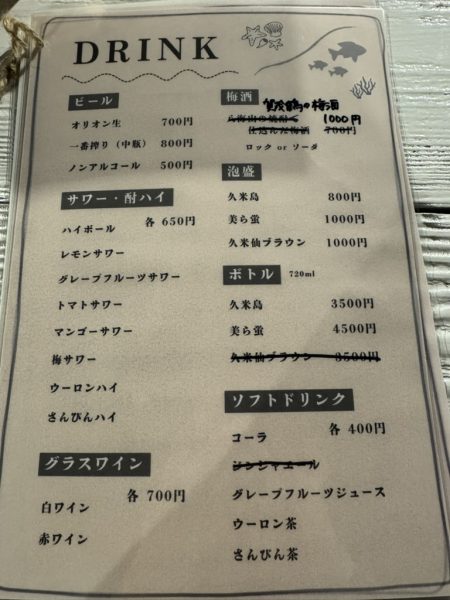 DRINK
ビール
オリオン生 700円
一番搾り（中瓶） 800円
ノンアルコール 500円
サワー・酎ハイ
ハイボール 各 650円
レモンサワー
グレープフルーツサワー
トマトサワー
マンゴーサワー
梅サワー
ウーロンハイ
さんぴんハイ
グラスワイン
白ワイン 各 700円
赤ワイン
梅酒 賀茂鶴の梅酒
八海山の焼酎で 1000円
仕込んだ梅酒 700円
ロック or ソーダ
泡盛
久米島 800円
美ら蛍 1000円
久米仙ブラウン 1000円
ボトル 720ml
久米島 3500円
美ら蛍 4500円
久米仙ブラウン 3500円
ソフトドリンク
コーラ 各 400円
ジンジャエール
グレープフルーツジュース
ウーロン茶
さんぴん茶